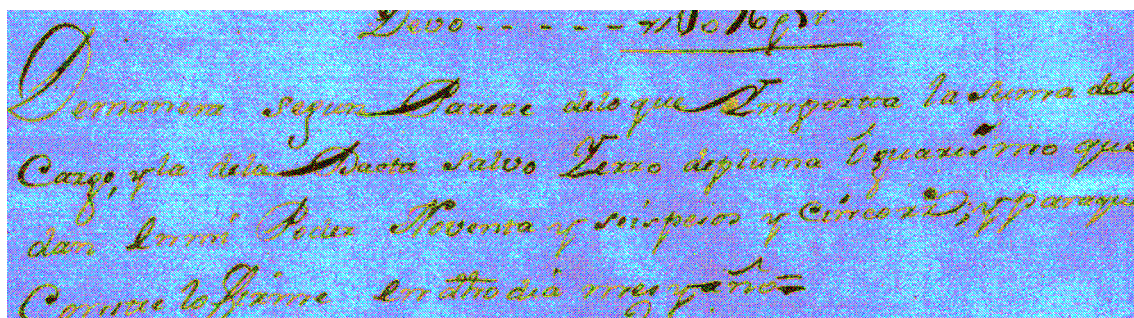 Devo - - - - -
Demanera segun Pareze delo que Ymporta la suma del
Cargo, y la dela Dacta salvo Yerro depluma o guarismo que
dan Enmi Poder Noventa y seis pesos y Cinco rs, y paraque
Conste lo firme en dho dia mes y año =